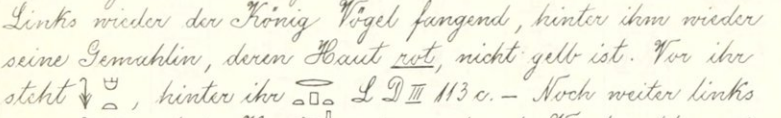 Links wieder der König Vögel fangend, hinter ihm wieder
seine Gemahlin, deren Haut rot, nicht gelb ist. Vor ihr
steht , hinter ihr L D III 113 c. — Noch weiter links